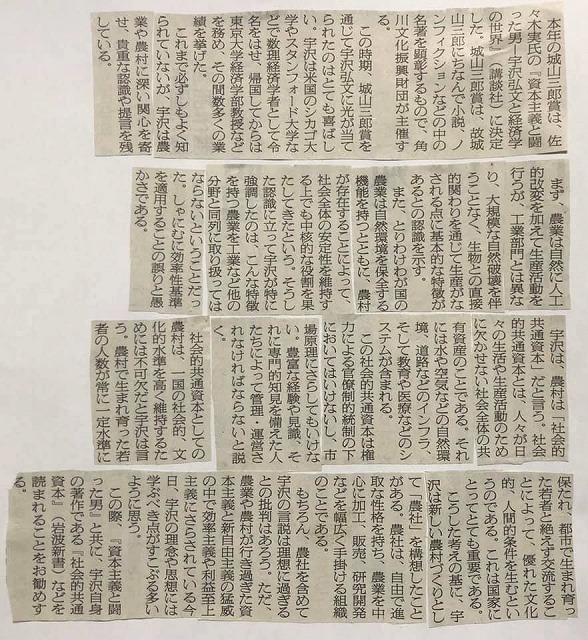 本年の城山三郎賞は、佐
々木実氏の『資本主義と闘
った男―宇沢弘文と経済学
の世界』（講談社）に決定
した。城山三郎賞は、故城
山三郎にちなんで小説、ノ
ンフィクションなどの中の
名著を顕彰するもので、角
川文化振興財団が主催す
る。
この時期、城山三郎賞を
通じて宇沢弘文に光が当て
られたのはとても喜ばし
い。宇沢は米国のシカゴ大
学やスタンフォード大学な
どで数理経済学者として令
名をはせ、帰国してからは
東京大学経済学部教授など
を務め、その間数多くの業
績を挙げた。
これまで必ずしもよく知
られていないが、宇沢は農
業や農村に深い関心を寄
せ、貴重な認識や提言を残
している。
まず、農業は自然に人工
的改変を加えて生産活動を
行うが、工業部門とは異な
り、大規模な自然破壊を伴
うことなく、生物との直接
的関わりを通じて生産がな
される点に基本的な特徴が
あるとの認識を示す。
また、とりわけわが国の
農業は自然環境を保全する
機能を持つとともに、農村
が存在することによって、
社会全体の安定性を維持す
る上でも中核的な役割を果
たしてきたという。そうし
た認識に立って宇沢が特に
強調したのは、こんな特徴
を持つ農業を工業など他の
分野と同列に取り扱っては
ならないということだっ
た。しゃにむに効率性基準
を適用することの誤りと愚
かさである。
宇沢は、農村は「社会的
共通資本」だと言う。社会
的共通資本とは、人々が日
々の生活や生産活動のため
に欠かせない社会全体の共
有資産のことである。それ
には水や空気などの自然環
境、道路などのインフラ、
そして教育や医療などのシ
ステムが含まれる。
この社会的共通資本は権
力による官僚制的統制の下
においてはいけないし、市
場原理にさらしてもいけな
い。豊富な経験や見識、そ
れに専門的知見を備えた人
たちによって管理・運営さ
れなければならないと説
く。
社会的共通資本としての
農村は、一国の社会的、文
化的水準を高く維持するた
めには不可欠だと宇沢は言
う。農村で生まれ育った若
者の人数が常に一定水準に
保たれ、都市で生まれ育っ
た若者と絶えず交流するこ
とによって、優れた文化
的、人間的条件を生むとい
うのである。これは国家に
とってとても重要である。
こうした考えの基に、宇
沢は新しい農村づくりとし
て「農社」を構想したこと
がある。農社は、自由で進
取な性格を持ち、農業を中
心に加工、販売、研究開発
などを幅広く手掛ける組織
のことである。
もちろん、農社を含めて
宇沢の言説は理想に過ぎる
との批判はあろう。ただ、
農業や農村が行き過ぎた資
本主義と新自由主義の猛威
の中で効率主義や利益至上
主義にさらされている今
日、宇沢の理念や思想には
学ぶべき点がすこぶる多い
ように思う。
この際、『資本主義と闘
った男』と共に、宇沢自身
の著作である『社会的共通
資本』（岩波新書）などを
読まれることをお勧めす
る。